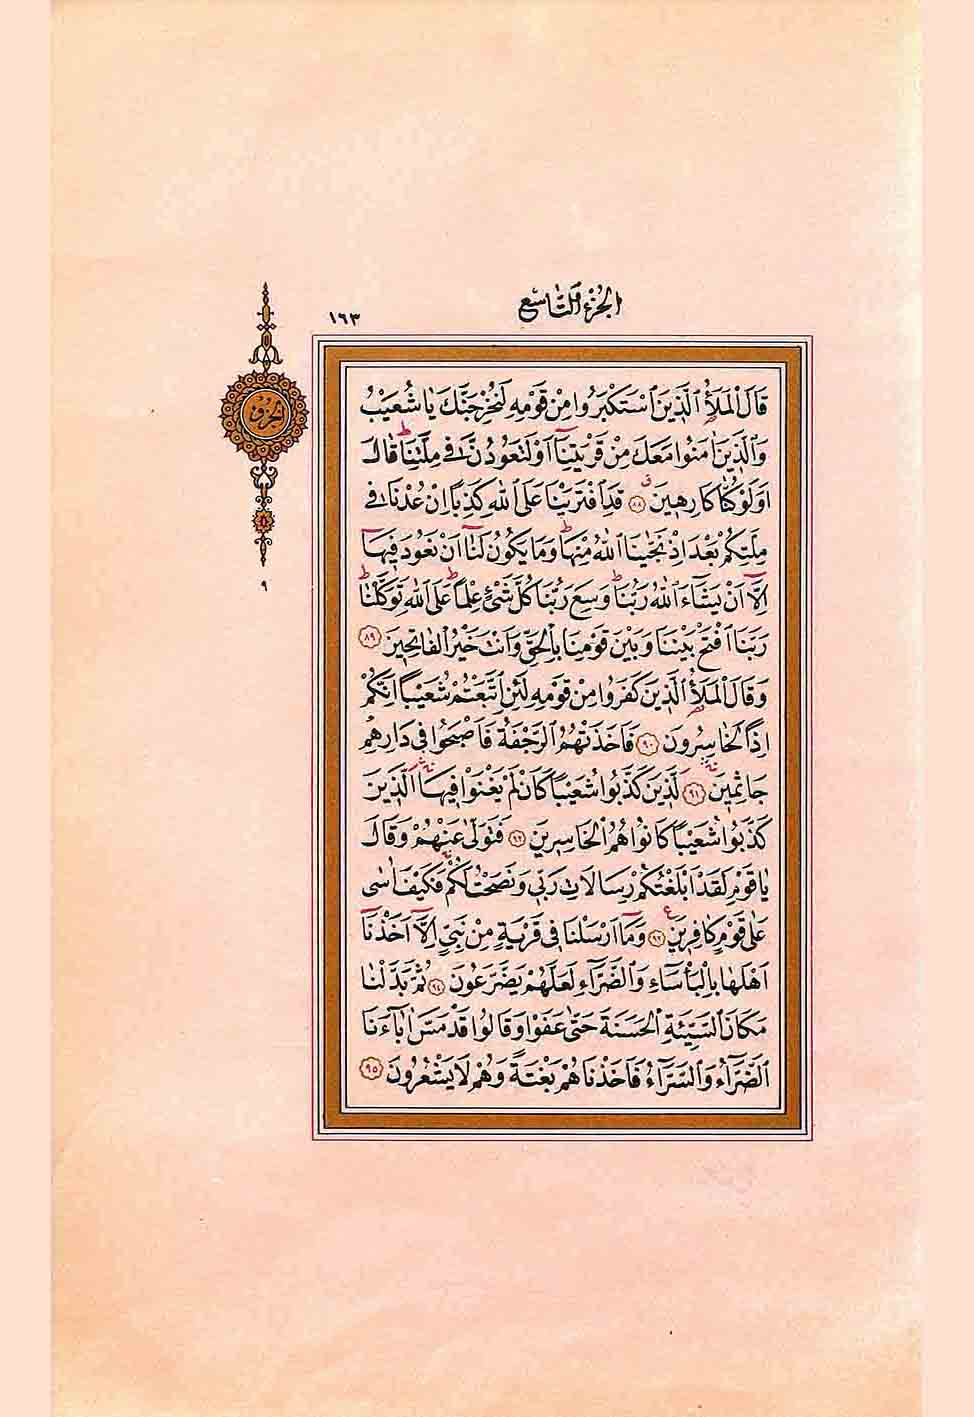 الجزء التاسع
١٦٣
الجزء
٩
قَالَ الْمَلَأُ الَّذِينَ اسْتَكْبَرُوا مِنْ قَوْمِهِ لَنُخْرِجَنَّكَ يَا شُعَيْبُ
وَالَّذِينَ اٰمَنُوا مَعَكَ مِنْ قَرْيَتِنَٓا اَوْ لَتَعُودُنَّ فِي مِلَّتِنَاۜ قَالَ
اَوَلَوْ كُنَّا كَارِهِينَ ﴿٨٨﴾ قَدِ افْتَرَيْنَا عَلَى اللّٰهِ كَذِبًا اِنْ عُدْنَا فِي
مِلَّتِكُمْ بَعْدَ اِذْ نَجّٰينَا اللّٰهُ مِنْهَاۜ وَمَا يَكُونُ لَنَٓا اَنْ نَعُودَ فِيهَٓا
اِلَّٓا اَنْ يَشَٓاءَ اللّٰهُ رَبُّنَاۜ وَسِعَ رَبُّنَا كُلَّ شَيْءٍ عِلْمًاۜ عَلَى اللّٰهِ تَوَكَّلْنَاۜ
رَبَّنَا افْتَحْ بَيْنَنَا وَبَيْنَ قَوْمِنَا بِالْحَقِّ وَاَنْتَ خَيْرُ الْفَاتِحِينَ ﴿٨٩﴾
وَقَالَ الْمَلَأُ الَّذِينَ كَفَرُوا مِنْ قَوْمِهِ لَئِنِ اتَّبَعْتُمْ شُعَيْبًا اِنَّكُمْ
اِذًا لَخَاسِرُونَ ﴿٩٠﴾ فَاَخَذَتْهُمُ الرَّجْفَةُ فَاَصْبَحُوا فِي دَارِهِمْ
جَاثِمِينَ ﴿٩١﴾ اَلَّذِينَ كَذَّبُوا شُعَيْبًا كَاَنْ لَمْ يَغْنَوْا فِيهَا اَلَّذِينَ
كَذَّبُوا شُعَيْبًا كَانُوا هُمُ الْخَاسِرِينَ ﴿٩٢﴾ فَتَوَلّٰى عَنْهُمْ وَقَالَ
يَا قَوْمِ لَقَدْ اَبْلَغْتُكُمْ رِسَالَاتِ رَبِّي وَنَصَحْتُ لَكُمْ فَكَيْفَ اٰسٰى
عَلٰى قَوْمٍ كَافِرِينَ ﴿٩٣﴾ وَمَٓا اَرْسَلْنَا فِي قَرْيَةٍ مِنْ نَبِيٍّ اِلَّٓا اَخَذْنَٓا
اَهْلَهَا بِالْبَأْسَٓاءِ وَالضَّرَّٓاءِ لَعَلَّهُمْ يَضَّرَّعُونَ ﴿٩٤﴾ ثُمَّ بَدَّلْنَا
مَكَانَ السَّيِّئَةِ الْحَسَنَةَ حَتّٰى عَفَوْا وَقَالُوا قَدْ مَسَّ اٰبَٓاءَنَا
الضَّرَّٓاءُ وَالسَّرَّٓاءُ فَاَخَذْنَاهُمْ بَغْتَةً وَهُمْ لَا يَشْعُرُونَ ﴿٩٥﴾